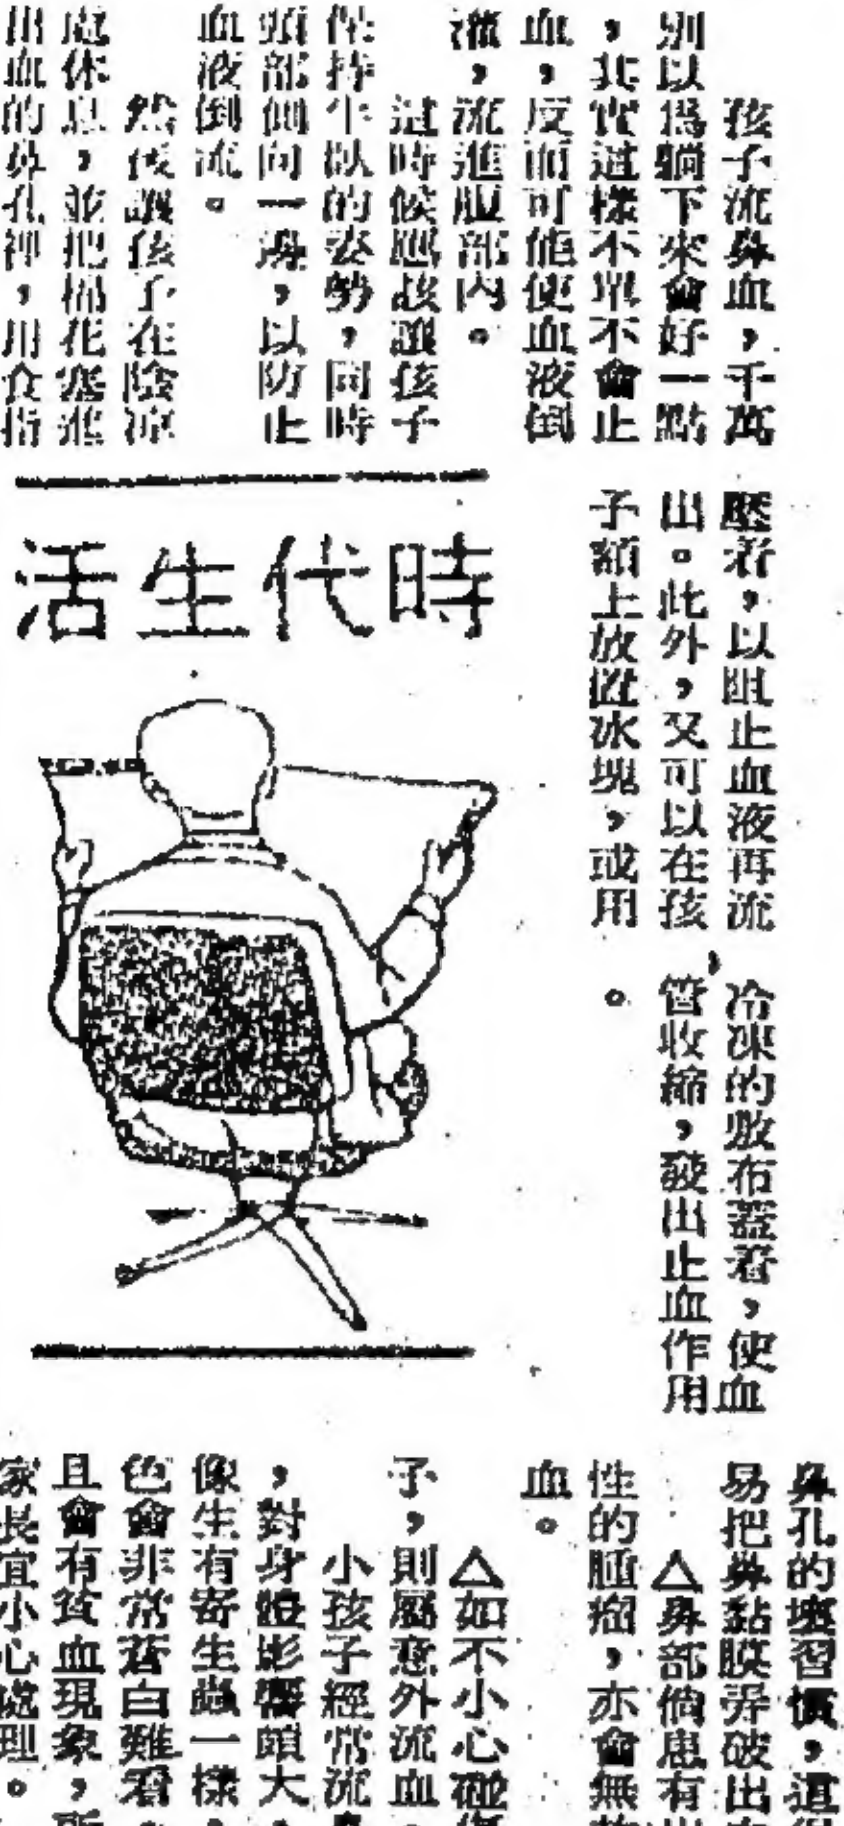 孩子流鼻血，千萬
別以爲躺下來會好一點
，其實這樣不單不會止
血，反而可能使血液倒
灌，流進腹部內。
這時候應該讓孩子
保持半臥的姿勢，同時
頭部側向一邊，以防止
血液倒流。
然後讓孩子在陰凉
處休息，並把棉花塞進
出血的鼻孔裡，用食指
壓着，以阻止血液再流
出。此外，又可以在孩
子額上放置冰塊，或用
冷凍的敷布蓋着，使血
管收縮，發出止血作用
。
時代生活
鼻孔的壞習慣，這
易把鼻黏膜弄破出
△鼻部倘患有出
性的腫瘤，亦會無
血。
△如不小心碰傷
子，則屬意外流血
小孩子經常流
，對身體影響頗大
像生有寄生蟲一樣
色會非常蒼白難看
且會有貧血現象，所
家長宜小心處理。